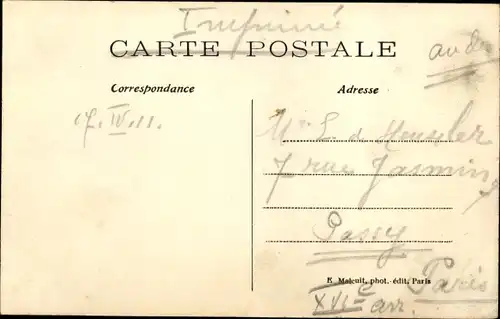 Imprimé
CARTE POSTALE
Correspondance
Adresse
17.IV.11.
L. de
7 rue Jasmin
Passy
E. Malcuit, phot.-édit, Paris
Paris
XVIe arr.